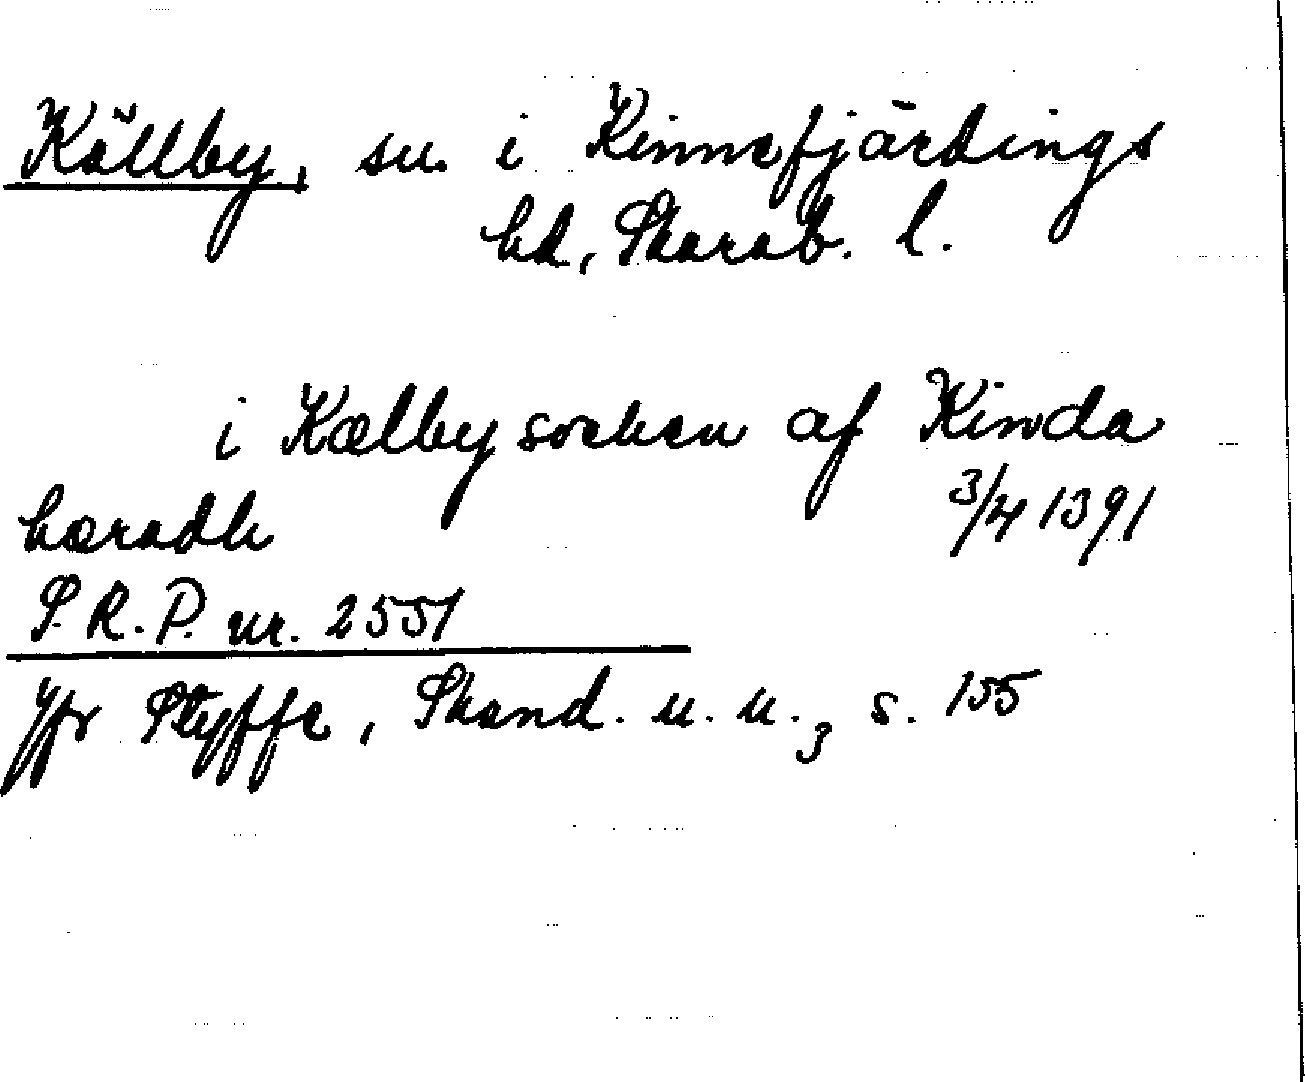 Källby, sn. i Kinnefjärdings
hd, Skarab. l.
i Kælby soeken af Kinda
hæradh
3/4 1391
S.R.P. nr. 2551
Jfr Styffe, Skand. u. u.3 s. 155